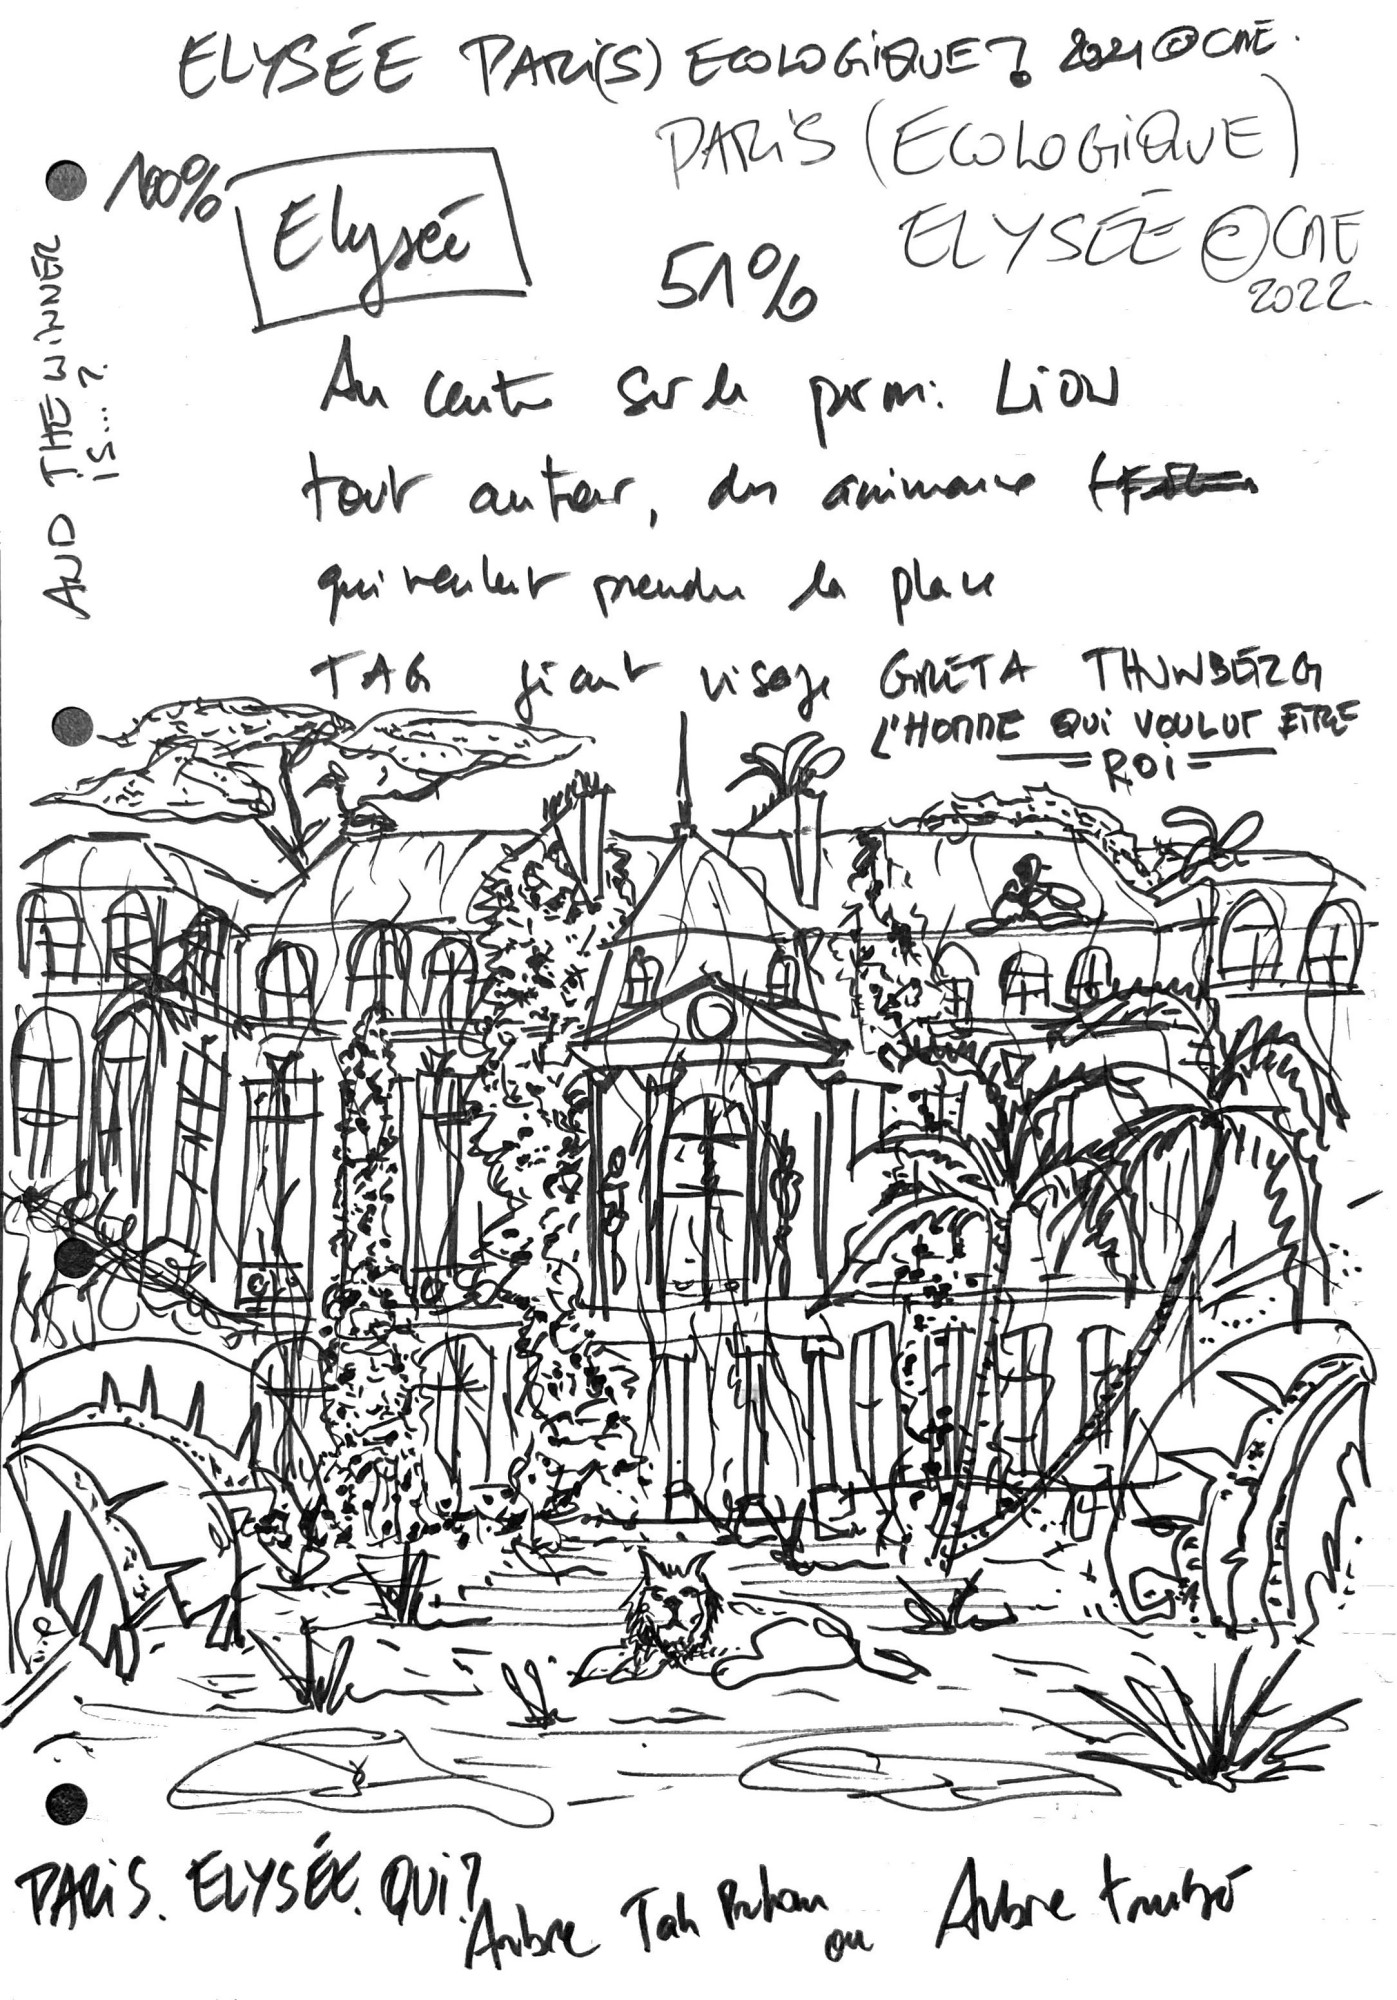 ELYSÉE PARi(S) ECOLOGiQUE? 2021 @CME.
PARiS (ECOLOGiQUE)
ELYSÉE @CME
2022.
100%
Elysée
51%
AND THE WiNNER
IS...?
Au centre sur le perron: LiON
tout autour, des animaux
qui veulent prendre la place
TAG géant visage GRETA THUNBERG
L'HOMME QUi VOULUT ETRE
=ROi=
PARiS. ELYSÉE. QUi?
Arbre Tah Prohm ou Arbre